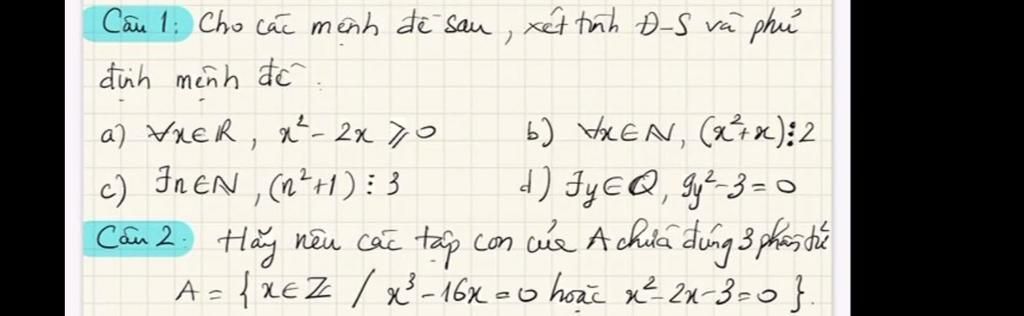 Câu 1: Cho các mệnh đề sau, xét tính Đ-S và phủ
định mệnh đề.
a) ∀x∈R, x² - 2x ⩾ 0 b) ∀x∈N, (x²+x)⋮2
c) ∃n∈N, (n²+1)⋮3 d) ∃y∈Q, 9y²-3=0
Câu 2. Hãy nêu các tập con của A chứa đúng 3 phần tử
A = {x∈Z / x³-16x=0 hoặc x²-2x-3=0}.